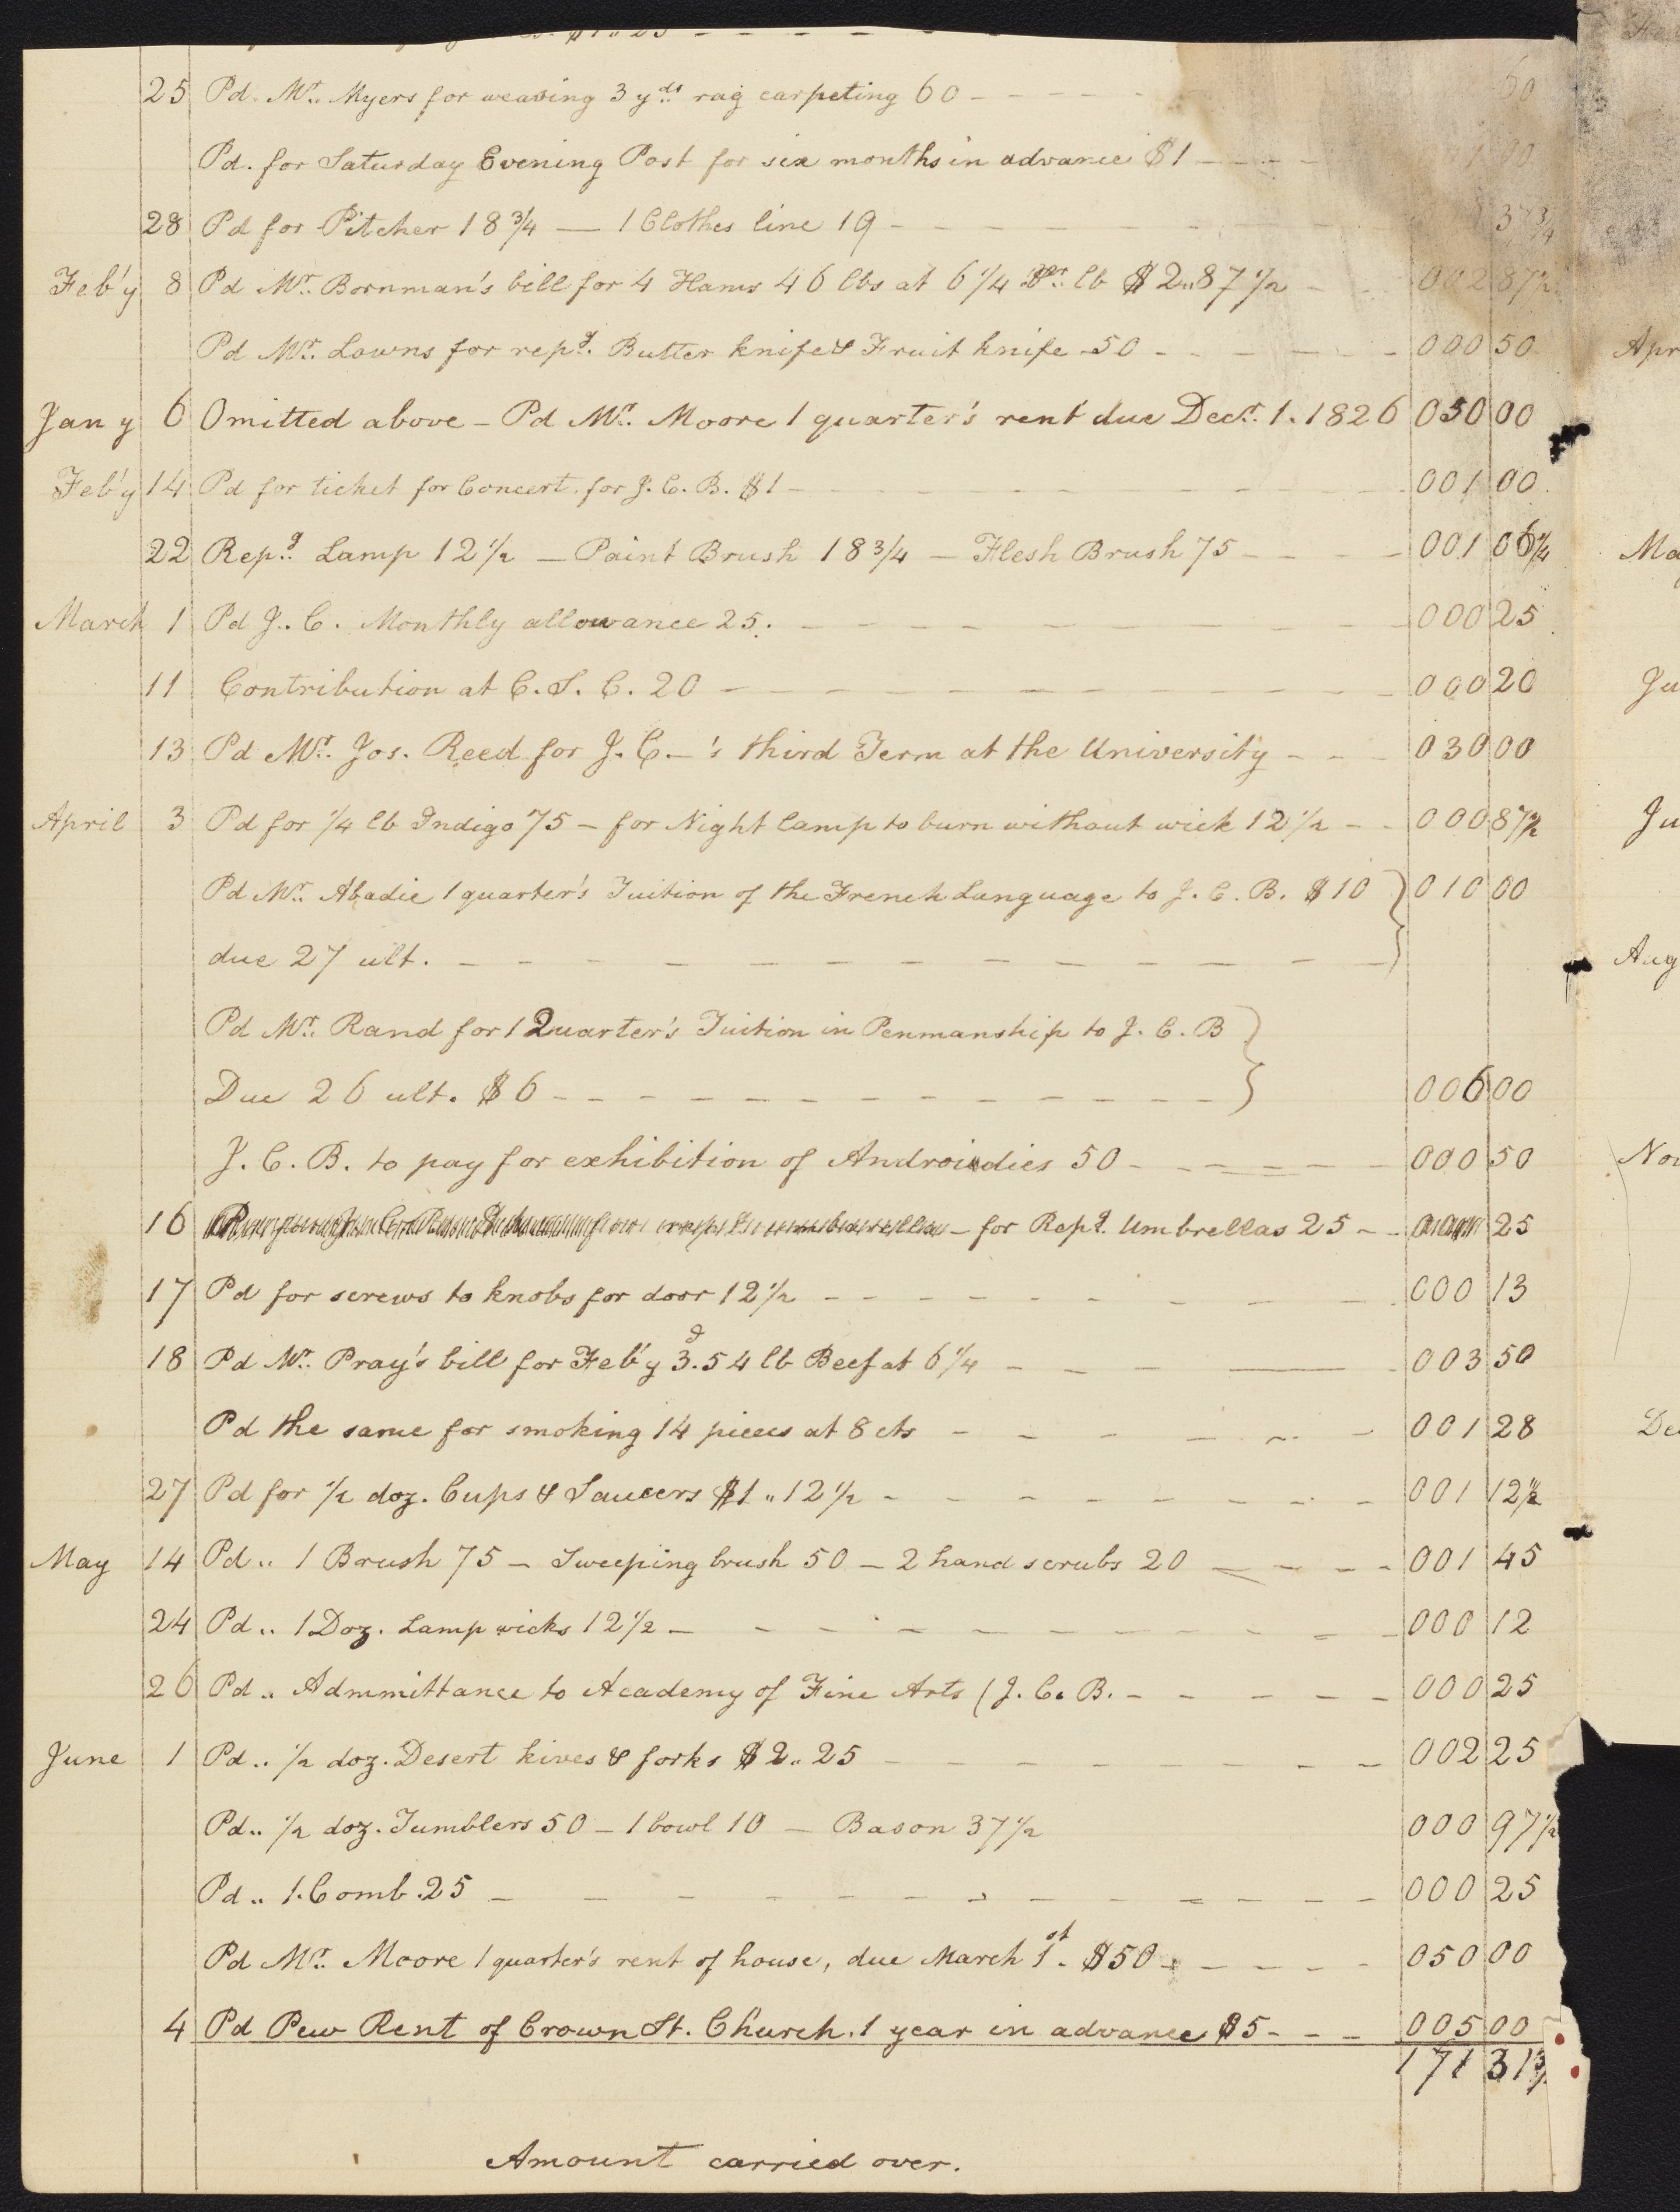 $1 .. 25
25 Pd. Mr. Myers for weaving 3 yds rag carpeting 60 60
Pd. for Saturday Evening Post for six months in advance $1 1 00
28 Pd for Pitcher 18 3/4 — 1 Clothes line 19 37 3/4
Feb'y 8 Pd Mr. Bornman's bill for 4 Hams 46 lbs at 6 1/4 lb $2..87 1/2 002 87 1/2
Pd Mr. Lowns for repg. Butter knife & Fruit knife 50 000 50
Jany 6 Omitted above - Pd Mr. Moore 1 quarter's rent due Decr. 1. 1826 050 00
Feb'y 14 Pd for ticket for Concert for J. C. B. $1 001 00
22 Repg Lamp 12 1/2 — Paint Brush 18 3/4 — Flesh Brush 75 001 06 1/4
March 1 Pd J. C. Monthly allowance 25. 000 25
11 Contribution at C. S. C. 20 000 20
13 Pd Mr. Jos. Reed for J. C—'s third Term at the University 030 00
April 3 Pd for 1/4 lb Indigo 75 — for Night lamp to burn without wick 12 1/2 000 87 1/2
Pd Mr. Abadie 1 quarter's Tuition of the French Language to J. C. B. $10 010 00
due 27 ult.
Pd Mr. Rand for 1 Quarter's Tuition in Penmanship to J. C. B
Due 26 ult. $6 006 00
J. C. B. to pay for exhibition of Androidies 50 000 50
16 — for Repg. Umbrellas 25 25
17 Pd for screws to knobs for door 12 1/2 000 13
18 Pd Mr. Pray's bill for Feb'y 3d. 54 lb Beef at 6 1/4 003 50
Pd the same for smoking 14 pieces at 8 cts 001 28
27 Pd for 1/2 doz. Cups & Saucers $1 .. 12 1/2 001 12 1/2
May 14 Pd .. 1 Brush 75 — Sweeping brush 50 — 2 hand scrubs 20 001 45
24 Pd .. 1 Doz. Lamp wicks 12 1/2 000 12
26 Pd .. Admmittance to Academy of Fine Arts (J. C. B. 000 25
June 1 Pd .. 1/2 doz. Desert kives & forks $2.. 25 002 25
Pd .. 1/2 doz. Tumblers 50 — 1 bowl 10 — Bason 37 1/2 000 97 1/2
Pd .. 1. Comb. 25 000 25
Pd Mr. Moore 1 quarter's rent of house, due March 1st. $50 050 00
4 Pd Pew Rent of Crown St. Church. 1 year in advance $5 005 00
171 31
Amount carried over.
Apr
Ma
Ju
Ju
Aug
Nov
De